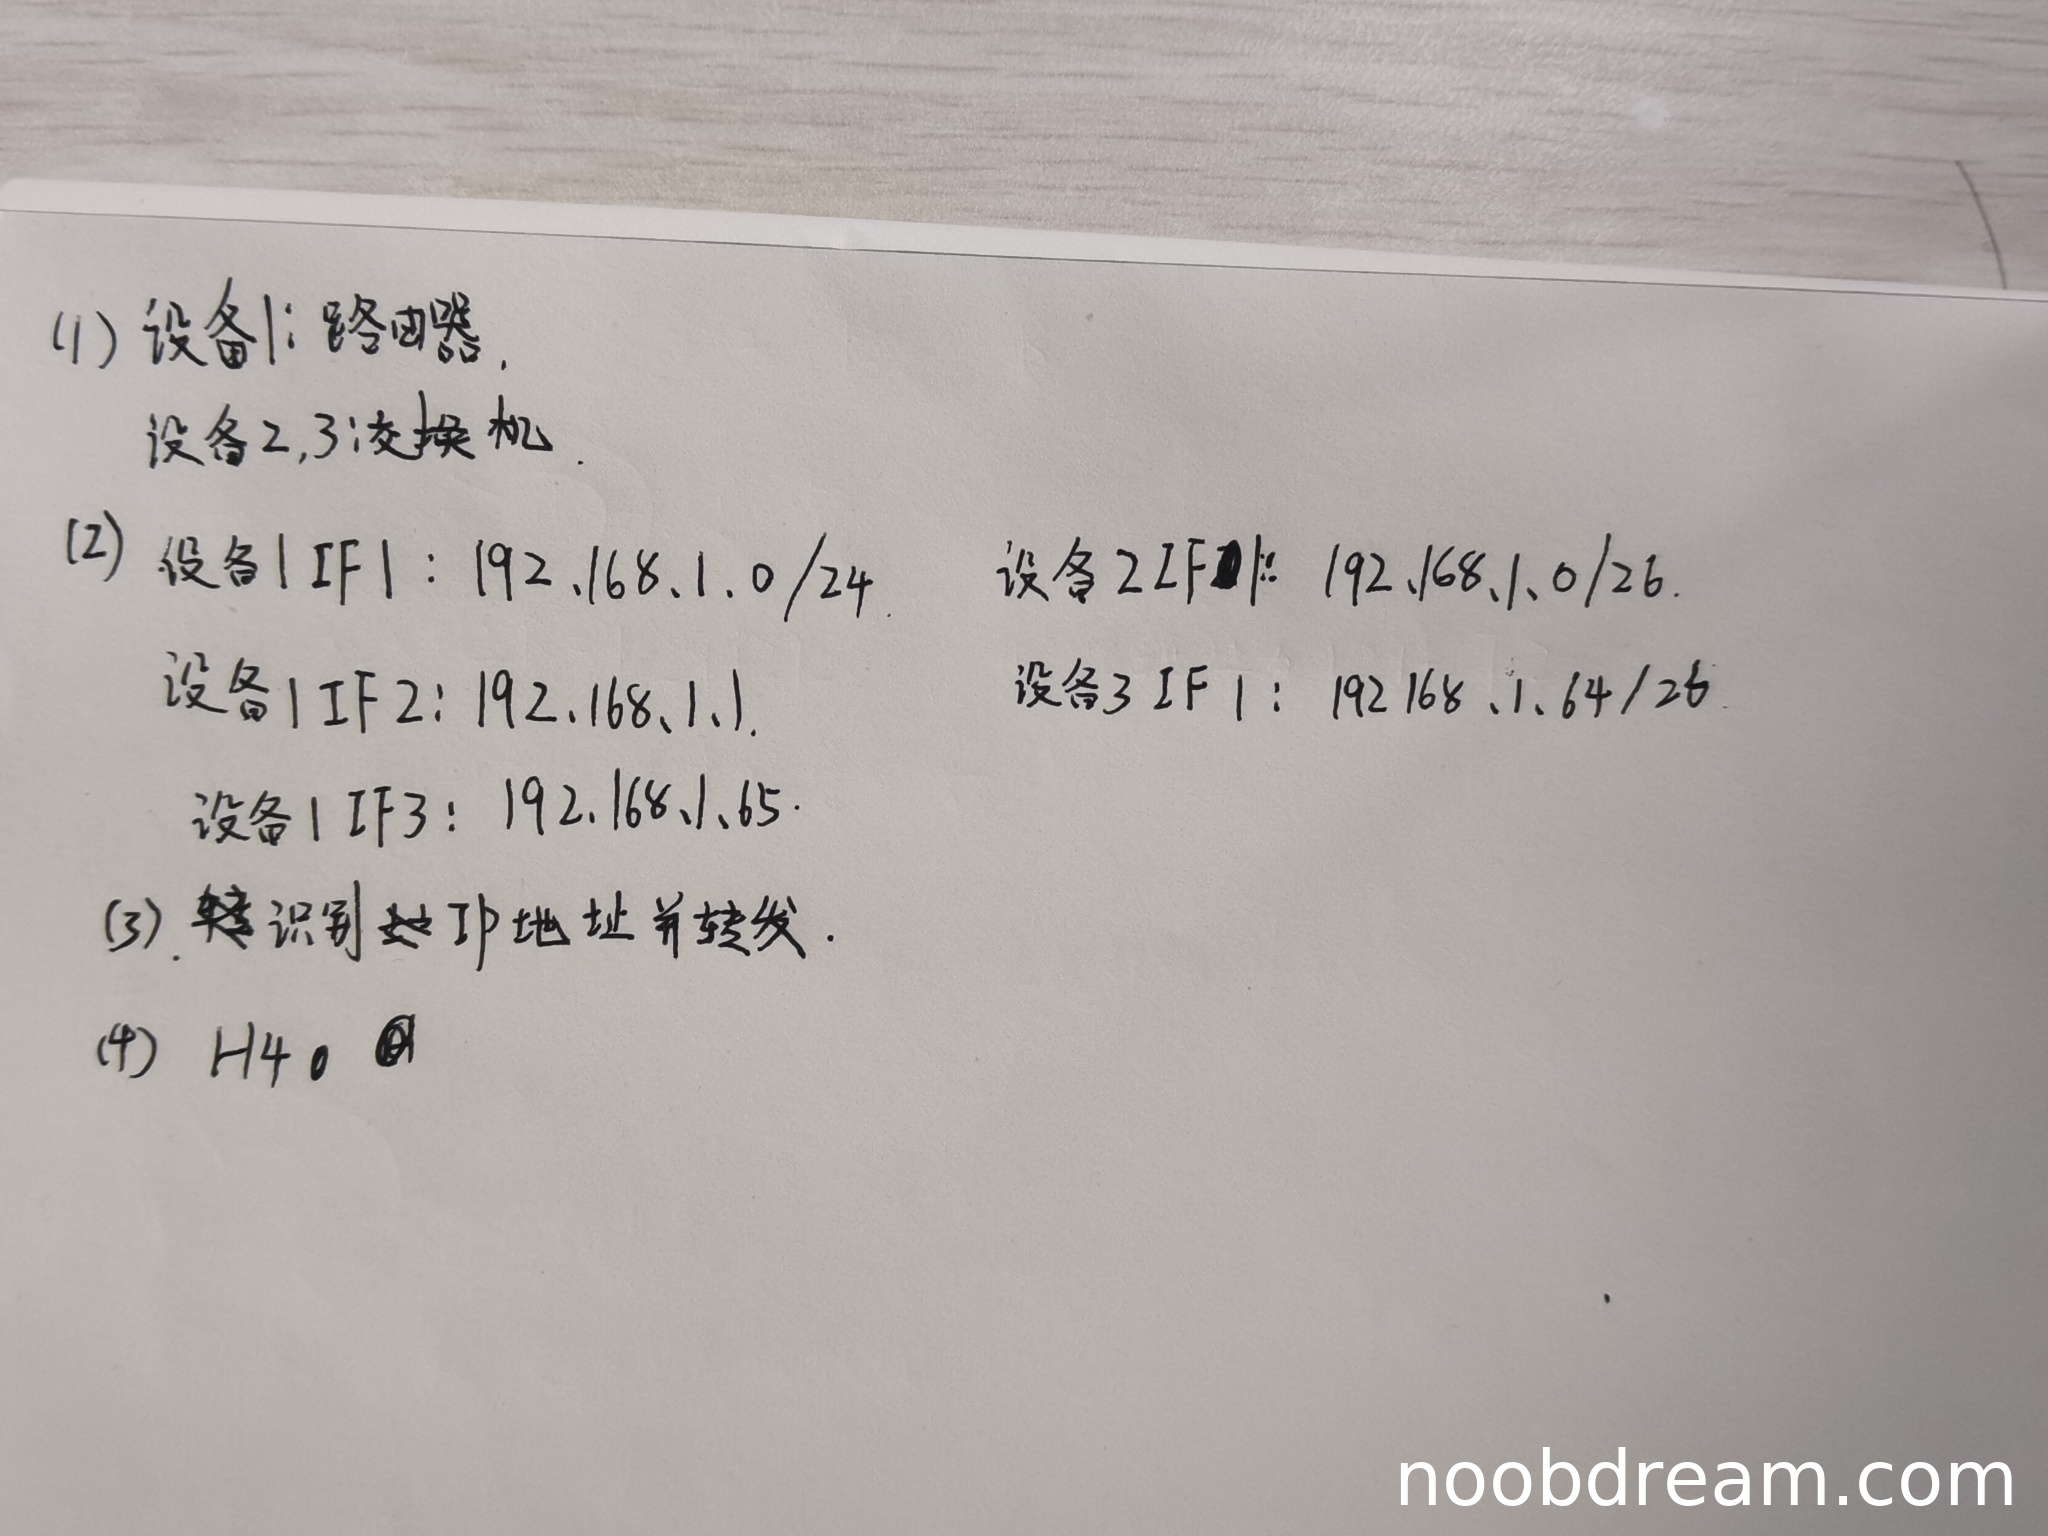 (1) 设备1：路由器.
设备2,3：交换机.
(2) 设备1 IF1: 192.168.1.0/24.
设备1 IF2: 192.168.1.1.
设备1 IF3: 192.168.1.65.
设备2 IF1: 192.168.1.0/26.
设备3 IF1: 192 168.1.64/26.
(3). 识别 IP地址并转发.
(4) H4.
noobdream.com